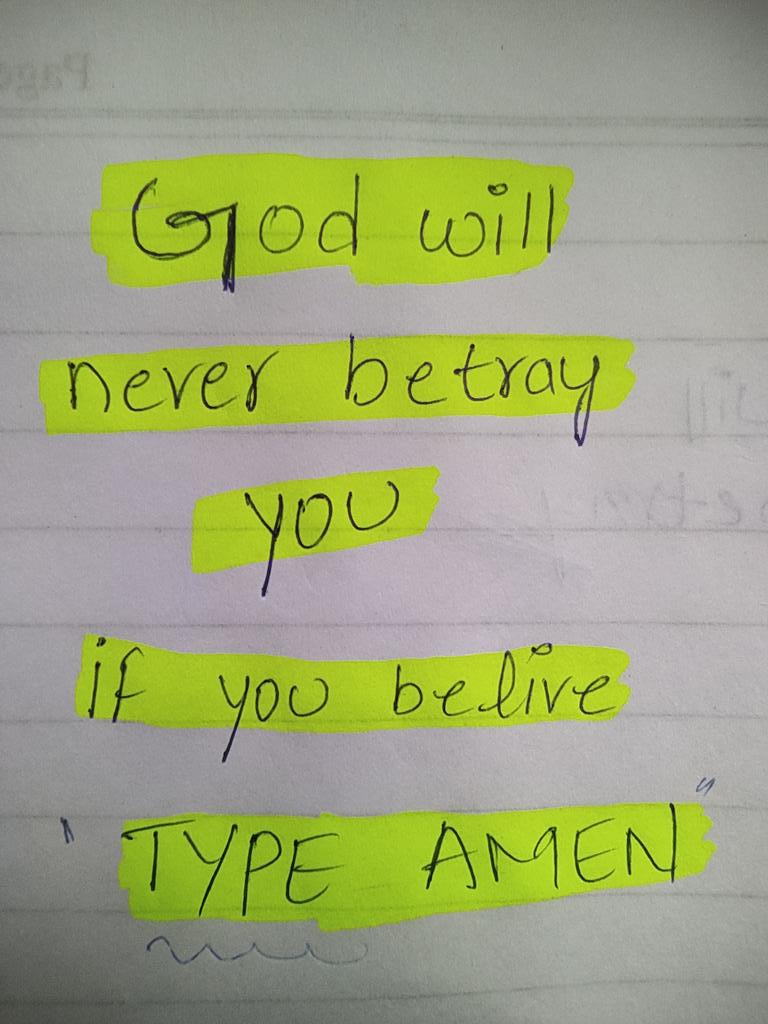 God will
never betray
you
if you belive
"TYPE AMEN"